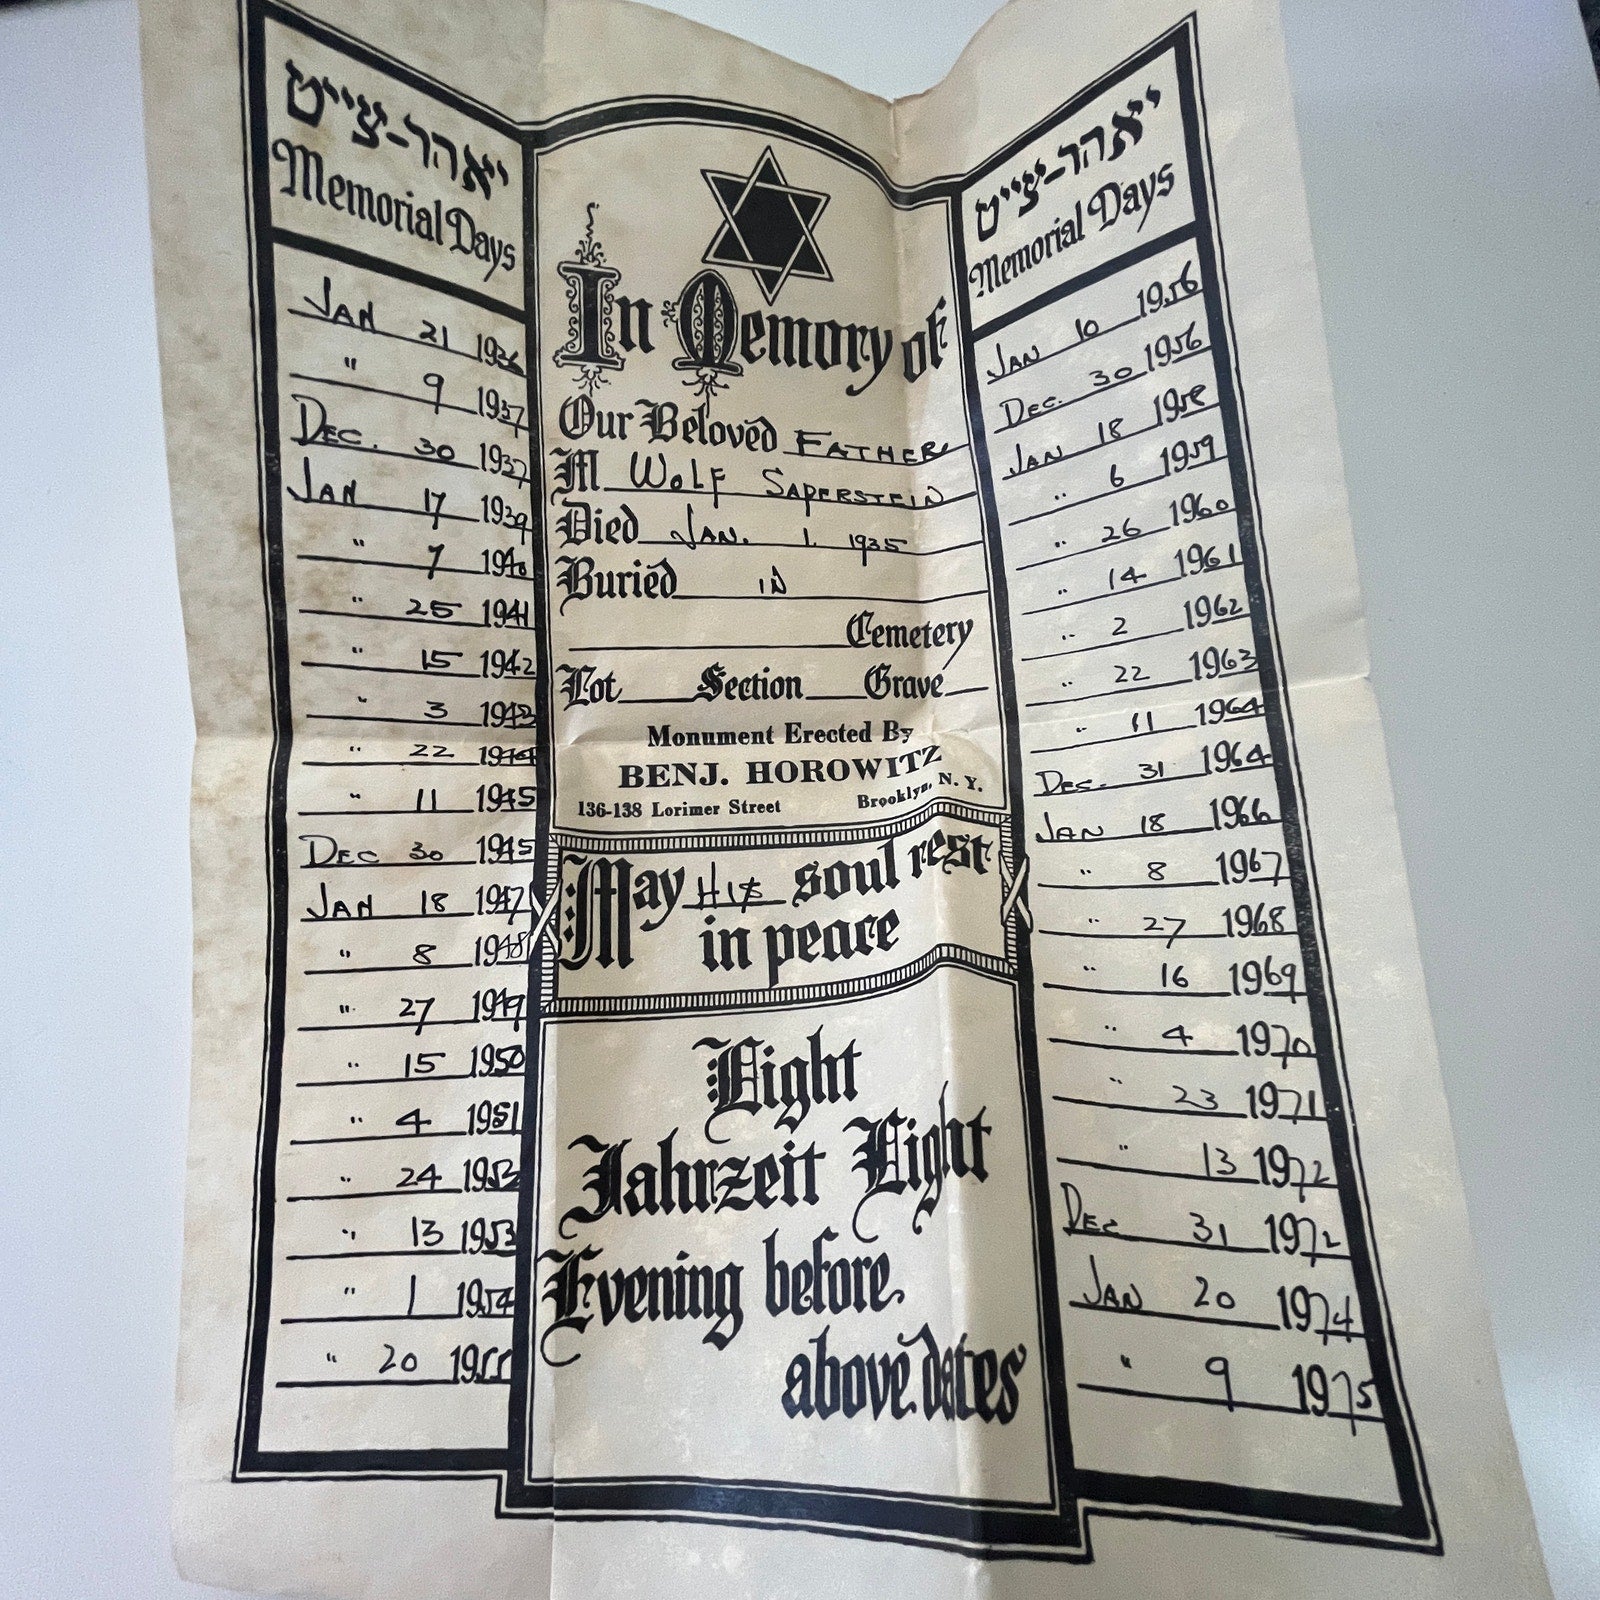 יאהר-צייט
Memorial Days
JAN 21 1936
" 9 1937
DEC. 30 1937
JAN 17 1939
" 7 1940
" 25 1941
" 15 1942
" 3 1943
" 22 1944
" 11 1945
DEC 30 1945
JAN 18 1947
" 8 1948
" 27 1949
" 15 1950
" 4 1951
" 24 1953
" 13 1953
" 1 1954
" 20 1955
In Memory of
Our Beloved FATHER
M WOLF SAPERSTEIN
Died JAN. 1 1935
Buried IN
Cemetery
Lot Section Grave
Monument Erected By
BENJ. HOROWITZ
136-138 Lorimer Street Brooklyn, N. Y.
May HIS soul rest
in peace
Light
Jahrzeit Light
Evening before
above dates
יאהר-צייט
Memorial Days
JAN 10 1956
DEC. 30 1956
JAN 18 1958
" 6 1959
" 26 1960
" 14 1961
" 2 1962
" 22 1963
" 11 1964
DEC. 31 1964
JAN 18 1966
" 8 1967
" 27 1968
" 16 1969
" 4 1970
" 23 1971
" 13 1972
DEC 31 1972
JAN 20 1974
" 9 1975